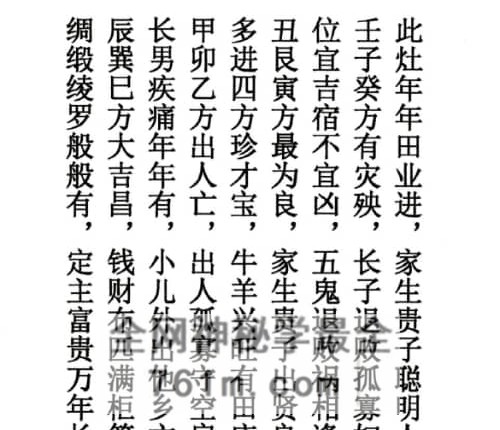 此灶年年田业进，家生贵子聪明
壬子癸方有灾殃，长子退败孤寡
位宜吉宿不宜凶，五鬼退败祸相
丑艮寅方最为良，家生贵子出贤
多进四方珍才宝，牛羊兴旺有田
甲卯乙方出人亡，出人孤寡守空
长男疾痛年年有，小儿外出他乡
辰巽巳方大吉昌，钱财布匹满柜
绸缎绫罗般般有，定主富贵万年
全网神秘学最全